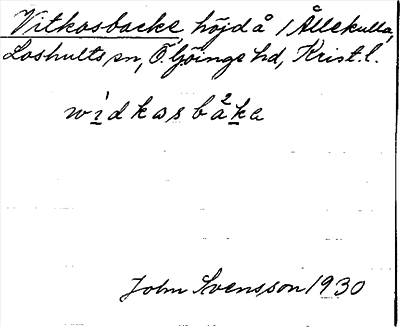 Vitkasbacke höjd å 1 Ållekulla,
Loshults sn, Ö. Göinge hd, Krist. l.
wìdkasbå²ka
John Svensson 1930